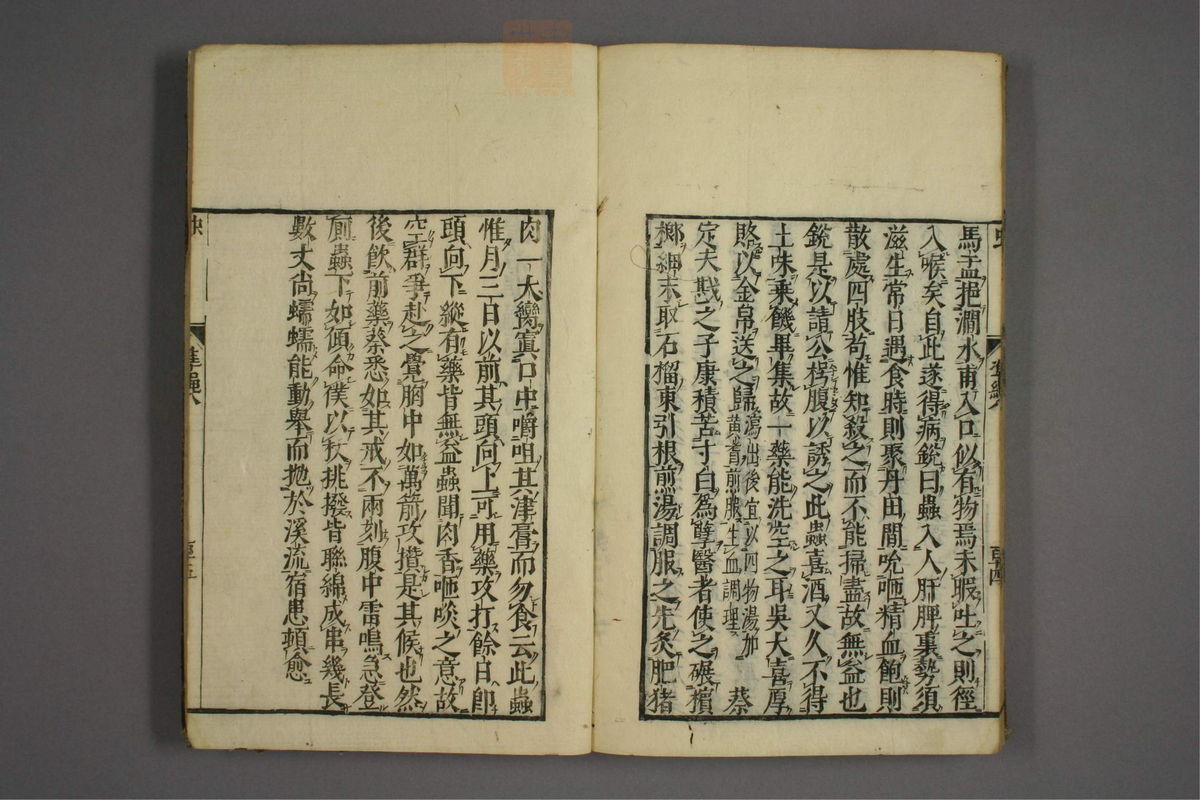 馬盂挹澗水甫入口似有物焉未暇吐之則徑
入喉矣自此遂得病銳曰蟲入人肝脾裏勢須
滋生常日遇食時則聚丹田間吮咂精血飽則
散處四肢苟惟知殺之而不能掃盡故無益也
銳是以請公枵腹以誘之此蟲喜酒又久不得
土味乘饑畢集故一藥能洗空之耳吳大喜厚
賂以金帛送之歸瀉出後宜以四物湯加黃耆煎服生血調理蔡
定夫戡之子康積苦寸白為孽醫者使之碾檳
榔細末取石榴東引根煎湯調服之先炙肥猪
肉一大臠寘口中嚼咀其津膏而勿食云此蟲
惟月三日以前其頭向上可用藥攻打餘日卽
頭向下縱有藥皆無益蟲聞肉香咂啖之意故
空群爭赴之覺胸中如萬箭攻攢是其候也然
後飲前藥蔡悉如其戒不兩刻腹中雷鳴急登
厠蟲下如傾命僕以杖挑撥皆聯綿成串幾長
數丈尙蠕蠕能動舉而抛於溪流宿患頓愈